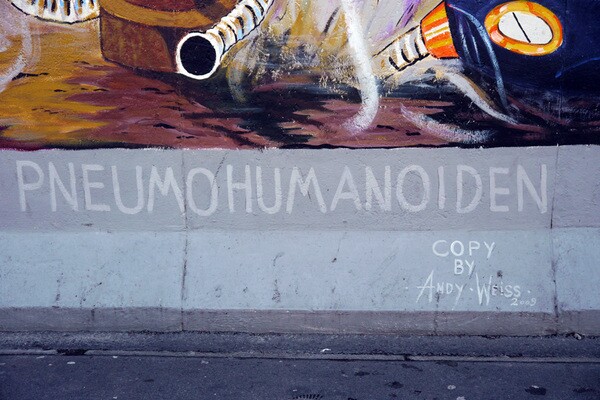 PNEUMOHUMANOIDEN
COPY
BY
- ANDY · WEISS -
2009